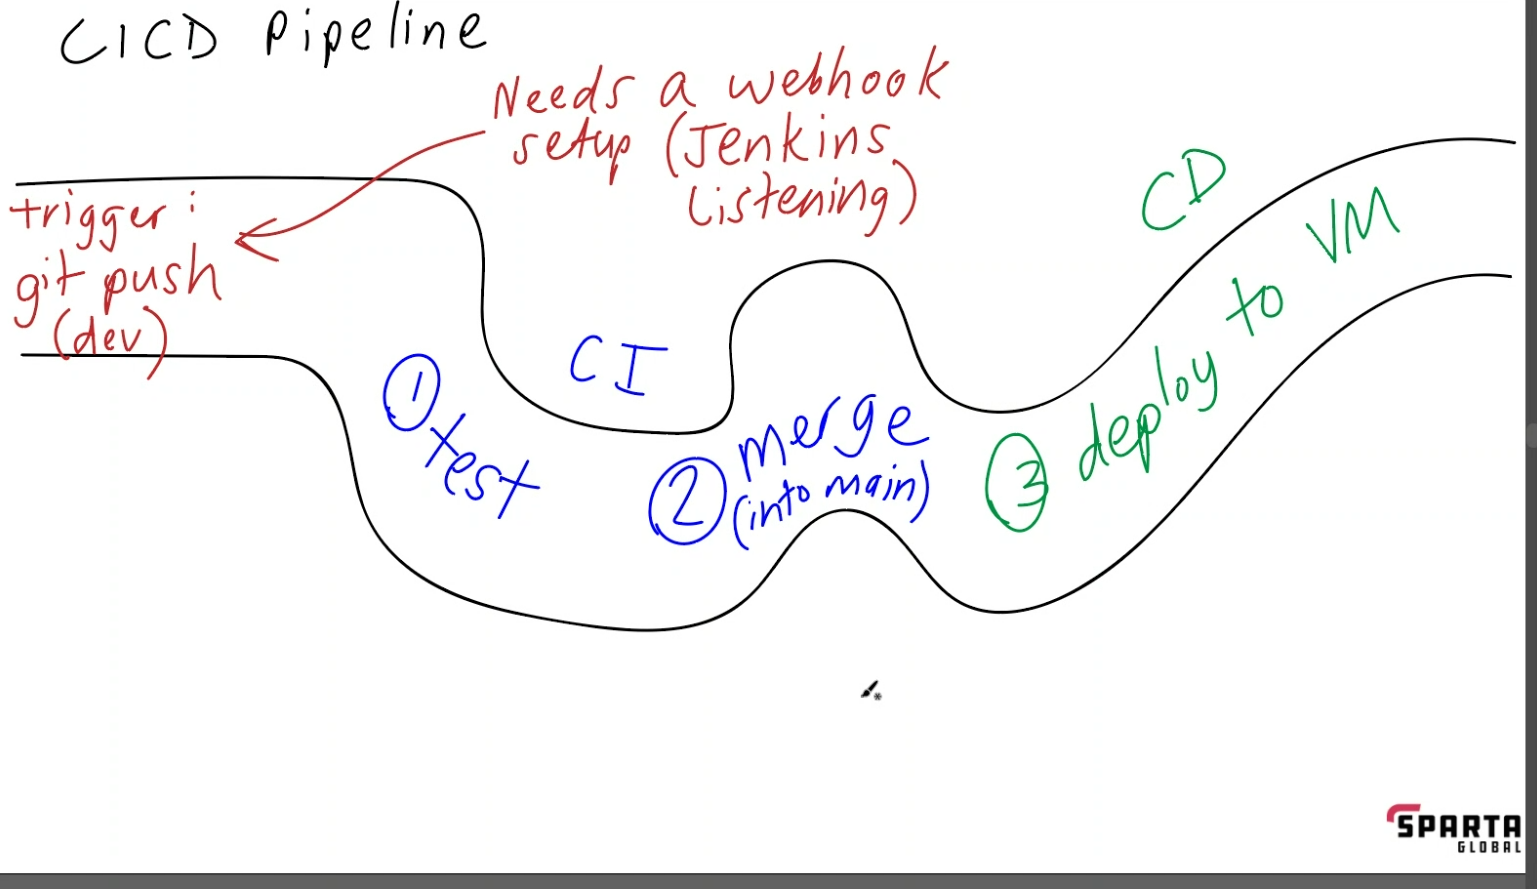 CICD Pipeline
Needs a webhook
setup (Jenkins
Listening)
trigger:
git push
(dev)
CI
1
test
2
merge
(into main)
CD
3
deploy to VM
SPARTA
GLOBAL